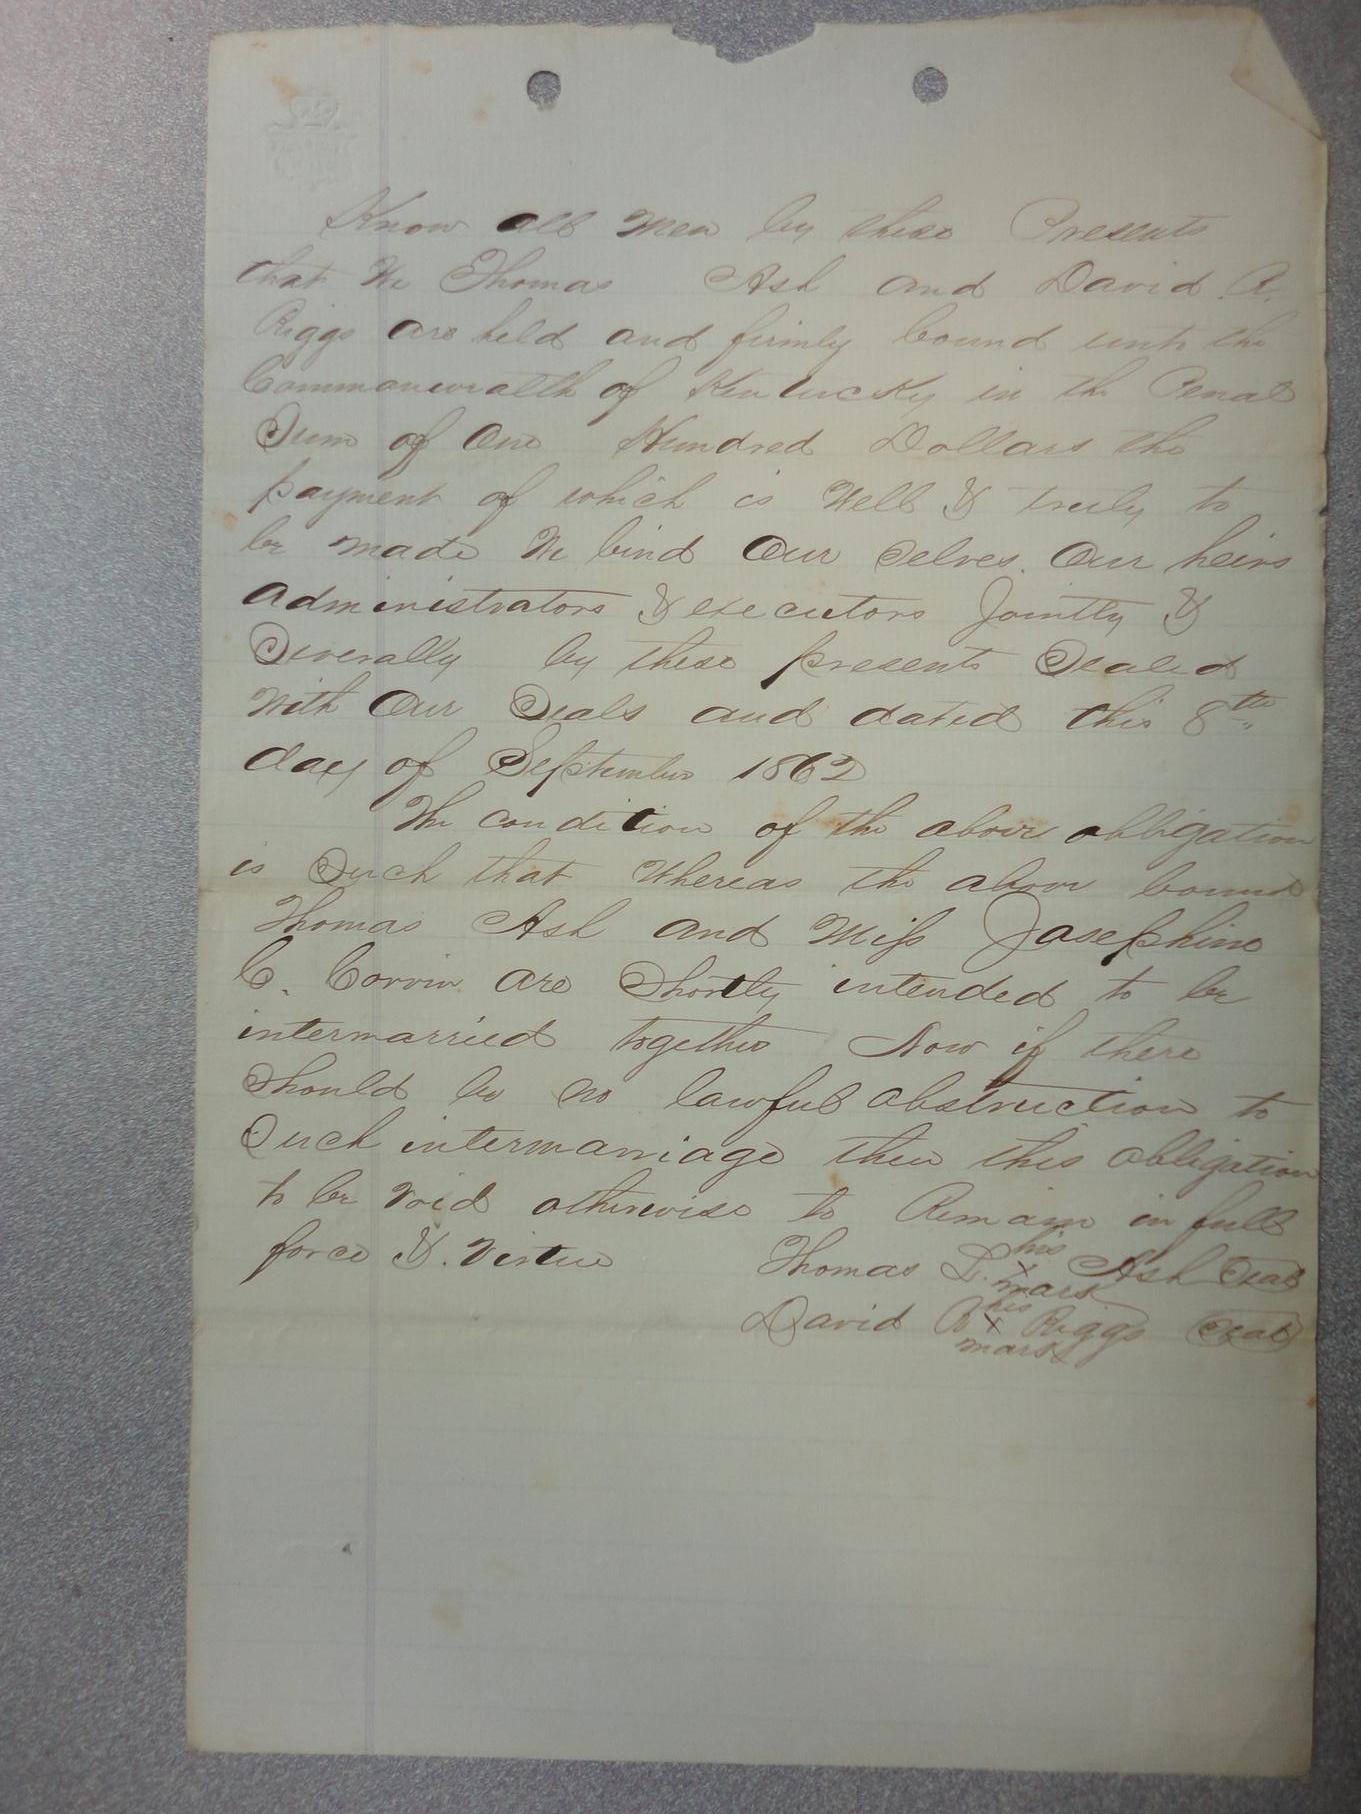 Know all Men by these Presents
that We Thomas Ash and David R.
Riggs are held and firmly bound unto the
Commonwealth of Kentucky in the Penal
Sum of One Hundred Dollars the
payment of which is Well & truly to
be made We bind Our Selves. Our heirs
administrators & executors Jointly &
Severally by these presents Sealed
With Our Seals and dated this 8th
day of September 1862
The condition of the above obligation
is Such that Whereas the above bound
Thomas Ash and Miss Josephine
C. Corvin are Shortly intended to be
intermarried together Now if there
Should be no lawful obstruction to
Such intermarriage then this obligation
to be void otherwise to Remain in full
force & Virtue
Thomas L. his x mark Ash Seal
David R his x mark Riggs Seal